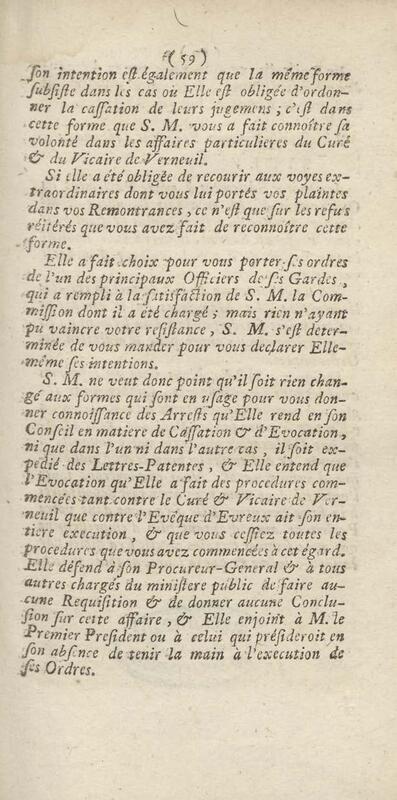 (59)
son intention est également que la même forme
subsiste dans les cas où Elle est obligée d'ordon-
ner la cassation de leurs jugemens ; c'est dans
cette forme que S. M. vous a fait connoître sa
volonté dans les affaires particulieres du Curé
& du Vicaire de Verneuil.
Si elle a été obligée de recourir aux voyes ex-
traordinaires dont vous lui portés vos plaintes
dans vos Remontrances, ce n'est que sur les refus
réitérés que vous avez fait de reconnoître cette
forme.
Elle a fait choix pour vous porter ses ordres
de l'un des principaux Officiers de ses Gardes,
qui a rempli à la satisfaction de S. M. la Com-
mission dont il a été chargé ; mais rien n'ayant
pu vaincre votre resistance, S. M. s'est deter-
minée de vous mander pour vous declarer Elle-
même ses intentions.
S. M. ne veut donc point qu'il soit rien chan-
gé aux formes qui sont en usage pour vous don-
ner connoissance des Arrests qu'Elle rend en son
Conseil en matiere de Cassation & d'Evocation,
ni que dans l'un ni dans l'autre cas, il soit ex-
pedié des Lettres-Patentes, & Elle entend que
l'Evocation qu'Elle a fait des procedures com-
mencées tant contre le Curé & Vicaire de Ver-
neuil que contre l'Evêque d'Evreux ait son en-
tiere execution, & que vous cessiez toutes les
procedures que vous avez commencées à cet égard.
Elle défend à son Procureur-General & à tous
autres chargés du ministere public de faire au-
cune Requisition & de donner aucune Conclu-
sion sur cette affaire, & Elle enjoint à M. le
Premier President ou à celui qui présideroit en
son absence de tenir la main à l'execution de
ses Ordres.